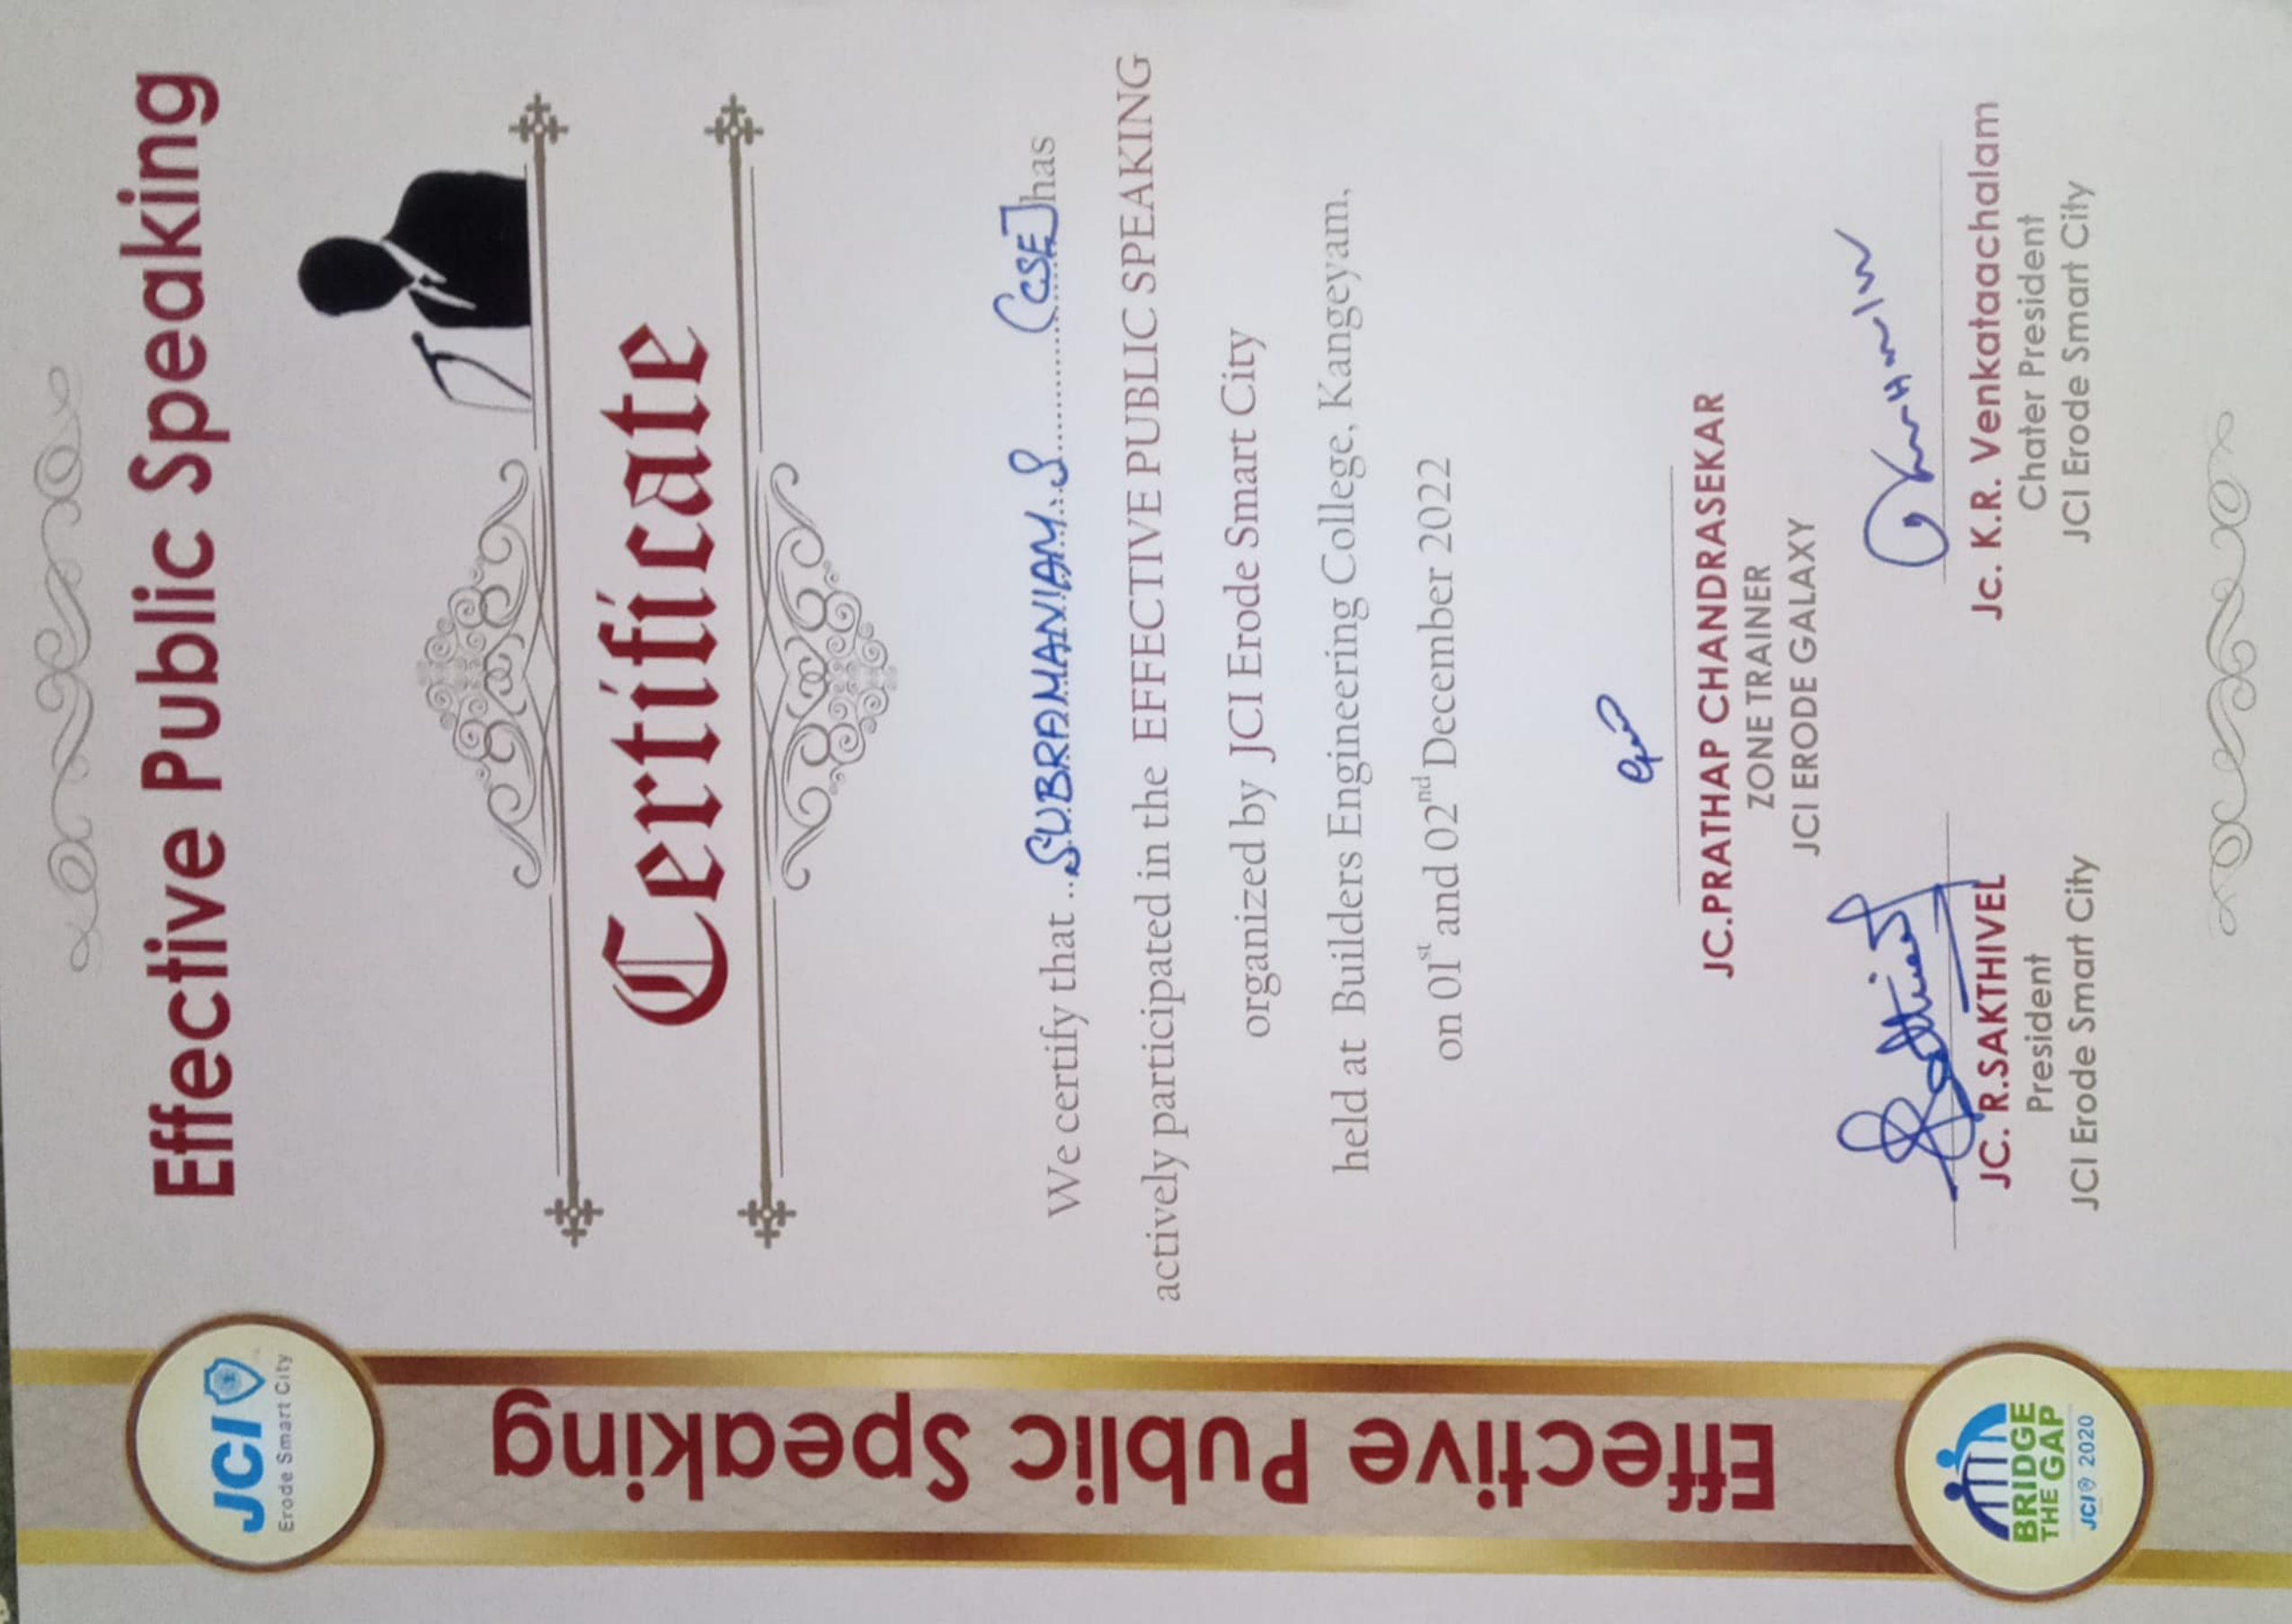 Effective Public Speaking
JCI
Erode Smart City
Effective Public Speaking
Certificate
We certify that SUBRAMANIAM. S (CSE] has
actively participated in the EFFECTIVE PUBLIC SPEAKING
organized by JCI Erode Smart City
held at Builders Engineering College, Kangeyam,
on 01st and 02nd December 2022
JC.PRATHAP CHANDRASEKAR
ZONE TRAINER
JCI ERODE GALAXY
Sakthivel
JC. R.SAKTHIVEL
President
JCI Erode Smart City
Jc. K.R. Venkataachalam
Chater President
JCI Erode Smart City
BRIDGE
THE GAP
JCI 2020